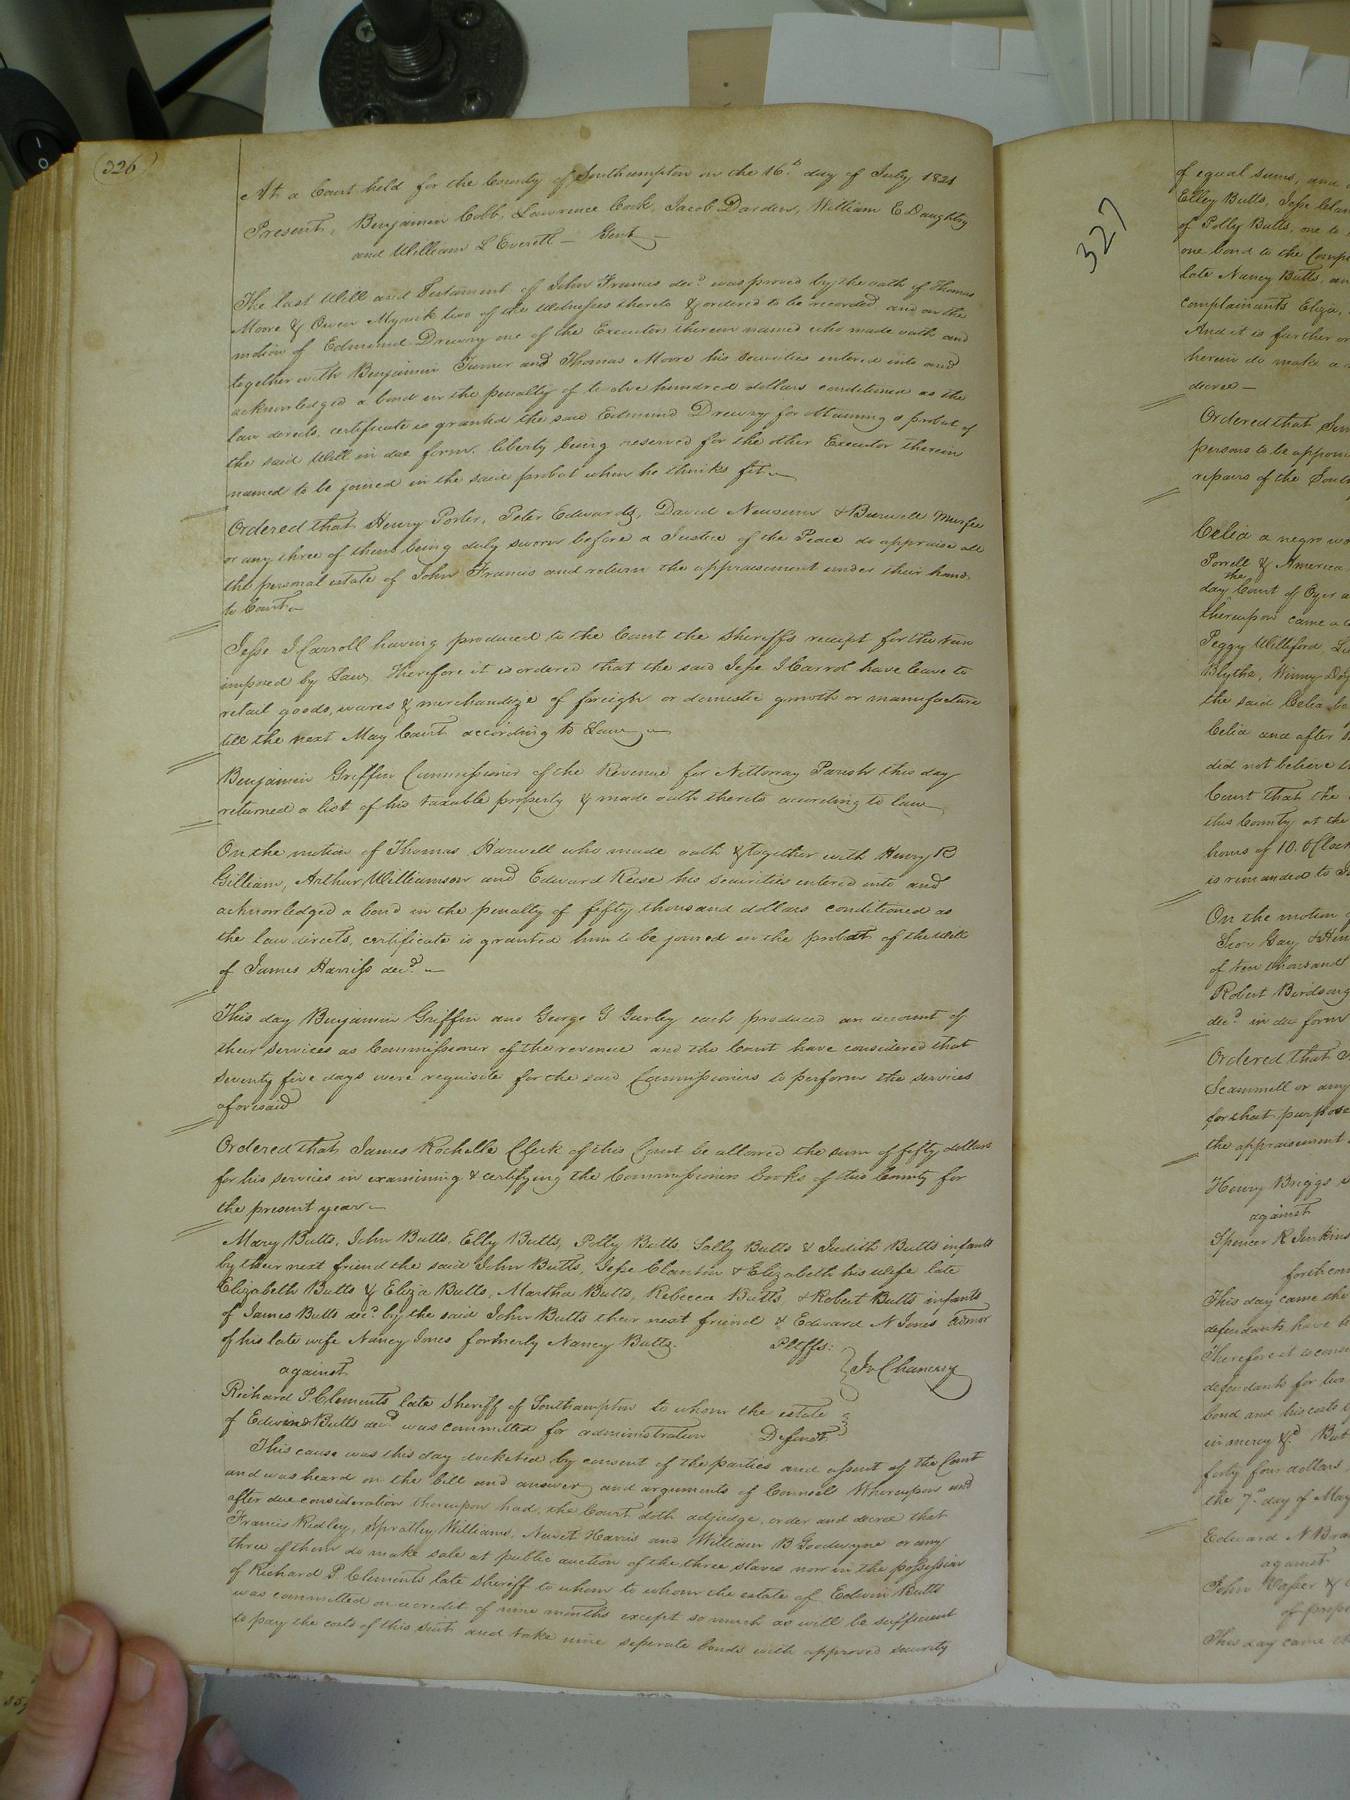 326
At a Court held for the County of Southampton on the 16th day of July 1821
Present, Benjamin Cobb, Lawrence Cook, Jacob Darden, William E Daughtry
and William L Everett — Gent
The last Will and Testament of John Francis decd was proved by the oath of Thomas
Moore & Owen Myrick two of the Witnesses thereto & ordered to be recorded and on the
motion of Edmund Drewry one of the Executors therein named who made oath and
together with Benjamin Turner and Thomas Moore his securities entered into and
acknowledged a bond in the penalty of twelve hundred dollars conditioned as the
law directs, certificate is granted the said Edmund Drewry for obtaining a probat of
the said Will in due form, liberty being reserved for the other Executor therein
named to be joined in the said probat when he thinks fit
Ordered that Henry Porter, Peter Edwards, David Newsums & Burwell Murfee
or any three of them being duly sworn before a Justice of the Peace do appraise all
the personal estate of John Francis and return the appraisement under their hands
to Court
Jesse J Carroll having produced to the Court the Sheriffs receipt for the tax
imposed by Law, Therefore it is ordered that the said Jesse J Carrol have leave to
retail goods, wares & merchandize of foreign or domestic growth or manufacture
till the next May Court according to Law
Benjamin Griffin Commissioner of the Revenue for Nottoway Parish this day
returned a list of his taxable property & made oath thereto according to law
On the motion of Thomas Harwell who made oath & together with Henry B
Gilliam, Arthur Williamson and Edward Reese his securities entered into and
acknowledged a bond in the penalty of fifty thousand dollars conditioned as
the law directs, certificate is granted him to be joined in the probat of the will
of James Harriss decd
This day Benjamin Griffin and George G Gurley each produced an account of
their services as Commissioner of the revenue and the Court have considered that
seventy five days were requisite for the said Commissioners to perform the services
aforesaid
Ordered that James Rochelle Clerk of this Court be allowed the sum of fifty dollars
for his services in examining & certifying the Commissioners books of this County for
the present year
Mary Butts, John Butts, Elly Butts, Polly Butts, Sally Butts & Judith Butts infants
by their next friend the said John Butts, Jesse Clanton & Elizabeth his wife late
Elizabeth Butts & Eliza Butts, Martha Butts, Rebecca Butts & Robert Butts infants
of James Butts decd by the said John Butts their next friend & Edward N Jones Admor
of his late wife Nancy Jones formerly Nancy Butts. Pltffs:
against In Chancery
Richard P. Clements late Sheriff of Southampton to whom the estate
of Edwin Butts decd was committed for administration Defendt
This cause was this day docketed by consent of the parties and assent of the Court
and was heard on the bill and answer, and arguments of Counsel Whereupon and
after due consideration thereupon had, the Court doth adjudge, order and decree that
Francis Ridley, Spratley Williams, Newit Harris and William B Goodwyn or any
three of them do make sale at public auction of the three slaves now in the possession
of Richard P Clements late Sheriff to whom to whom the estate of Edwin Butts
was committed on a credit of nine months except so much as will be sufficient
to pay the costs of this suit and take nine seperate bonds with approved security
327
of equal sums, and
Elley Butts, Jesse
of Polly Butts, one to
one bond to the
late Nancy Butts, an
complainants Eliza,
And it is further or
herein do make a
decree —
Ordered that
persons to be
repairs of the
Celia a negro
& America
the
day Court of Oyer
thereupon came
Peggy Williford,
Blythe, Winny
the said Celia
Celia and after
did not believe
Court that the
this County at the
hours of 10. OClock
is remanded to
On the motion
Gay
of ten thousand
Robert Birdsong
decd in due form
Ordered that
Scammell or any
for that purpose
the appraisement
Henry Briggs
against
Spencer R Jenkins
This day came the
defendants have
Therefore it is
defendants for two
bond and his costs
in mercy &c But
forty four dollars
the 7th day of May
Edward N
against
John
of
This day came